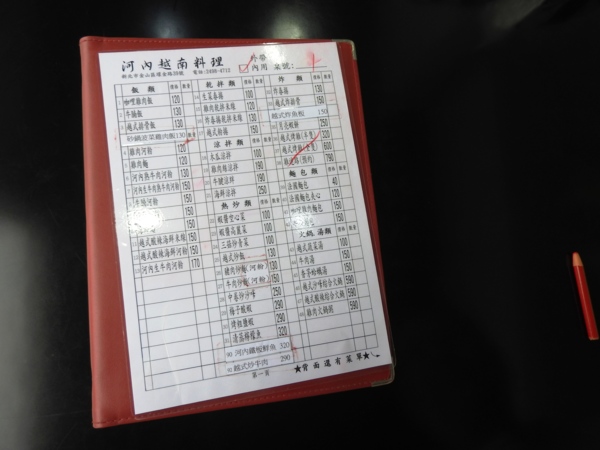 河內越南料理
外帶
內用 桌號:
新北市金山區
電話:2498-4712
飯類 價格 數量
咖哩雞肉飯 120
牛腩飯 130
越式排骨飯 130
砂鍋滷菜雞肉飯 150
雞肉河粉 120
雞肉麵 120
河內熟牛肉河粉 130
河內生牛肉熟牛肉河粉 150
牛燒河粉 150
越式酸辣海鮮米線 150
越式酸辣海鮮河粉 150
河內生牛肉河粉 170
乾拌類 價格 數量
生菜春捲 100
雞肉乾拌米線 120
炸春捲乾拌米線 150
越式粉捲 150
涼拌類
木瓜涼拌 100
雞肉絲涼拌 120
牛腱涼拌 190
海鮮涼拌 250
熱炒類
蝦醬空心菜 100
蝦醬高麗菜 100
三菇炒青菜 100
越式炒飯 130
豬肉炒(河粉) 130
牛肉炒(河粉) 150
中卷炒沙嗲 250
柚子酸蝦 290
烤粗鹽蝦 290
清蒸檸檬魚 320
90 河內鐵板鮮魚 320
92 越式炒牛肉 290
炸類 價格 數量
炸春捲 130
越式炸排骨 150
越式炸魚板 150
月亮蝦餅 250
越式烤雞(半隻) 320
越式烤雞(全隻) 600
(預約) 790
麵包類
法國麵包 40
法國麵包夾心 120
咖哩雞肉麵包 150
牛腩麵包 150
火鍋.湯類
越式蔬菜湯 100
牛肉湯 150
香茅蛤蠣湯 150
越式沙嗲綜合火鍋 590
越式酸辣綜合火鍋 590
雞肉火鍋粥 590
第一頁
★背面還有菜單★